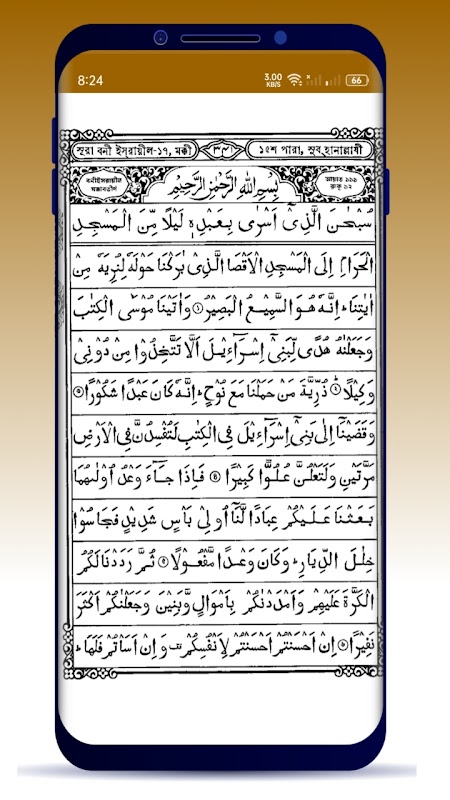 8:24 3.00 KB/S 66
সূরা বনী ইসরায়ীল-১৭, মক্কী ১৫শ পারা, সুব্‌হানাল্লাযী
বনীইসরায়ীল মক্কাবতীর্ণ بِسْمِ اللّٰهِ الرَّحْمٰنِ الرَّحِيْمِ আয়াত ১১১ রুকু ১২
سُبْحٰنَ الَّذِيْٓ اَسْرٰى بِعَبْدِهٖ لَيْلًا مِّنَ الْمَسْجِدِ
الْحَرَامِ اِلَى الْمَسْجِدِ الْاَقْصَا الَّذِيْ بٰرَكْنَا حَوْلَهٗ لِنُرِيَهٗ مِنْ
اٰيٰتِنَا ؕ اِنَّهٗ هُوَ السَّمِيْعُ الْبَصِيْرُ ۝١ وَاٰتَيْنَا مُوْسَى الْكِتٰبَ
وَجَعَلْنٰهُ هُدًى لِّبَنِيْٓ اِسْرَآءِيْلَ اَلَّا تَتَّخِذُوْا مِنْ دُوْنِيْ
وَكِيْلًا ۝٢ ذُرِّيَّةَ مَنْ حَمَلْنَا مَعَ نُوْحٍ ؕ اِنَّهٗ كَانَ عَبْدًا شَكُوْرًا ۝٣
وَقَضَيْنَآ اِلٰى بَنِيْٓ اِسْرَآءِيْلَ فِي الْكِتٰبِ لَتُفْسِدُنَّ فِي الْاَرْضِ
مَرَّتَيْنِ وَلَتَعْلُنَّ عُلُوًّا كَبِيْرًا ۝٤ فَاِذَا جَآءَ وَعْدُ اُوْلٰىهُمَا
بَعَثْنَا عَلَيْكُمْ عِبَادًا لَّنَآ اُولِيْ بَاْسٍ شَدِيْدٍ فَجَاسُوْا
خِلٰلَ الدِّيَارِ ؕ وَكَانَ وَعْدًا مَّفْعُوْلًا ۝٥ ثُمَّ رَدَدْنَا لَكُمُ
الْكَرَّةَ عَلَيْهِمْ وَاَمْدَدْنٰكُمْ بِاَمْوَالٍ وَّبَنِيْنَ وَجَعَلْنٰكُمْ اَكْثَرَ
نَفِيْرًا ۝٦ اِنْ اَحْسَنْتُمْ اَحْسَنْتُمْ لِاَنْفُسِكُمْ ۫ وَاِنْ اَسَاْتُمْ فَلَهَا ؕ